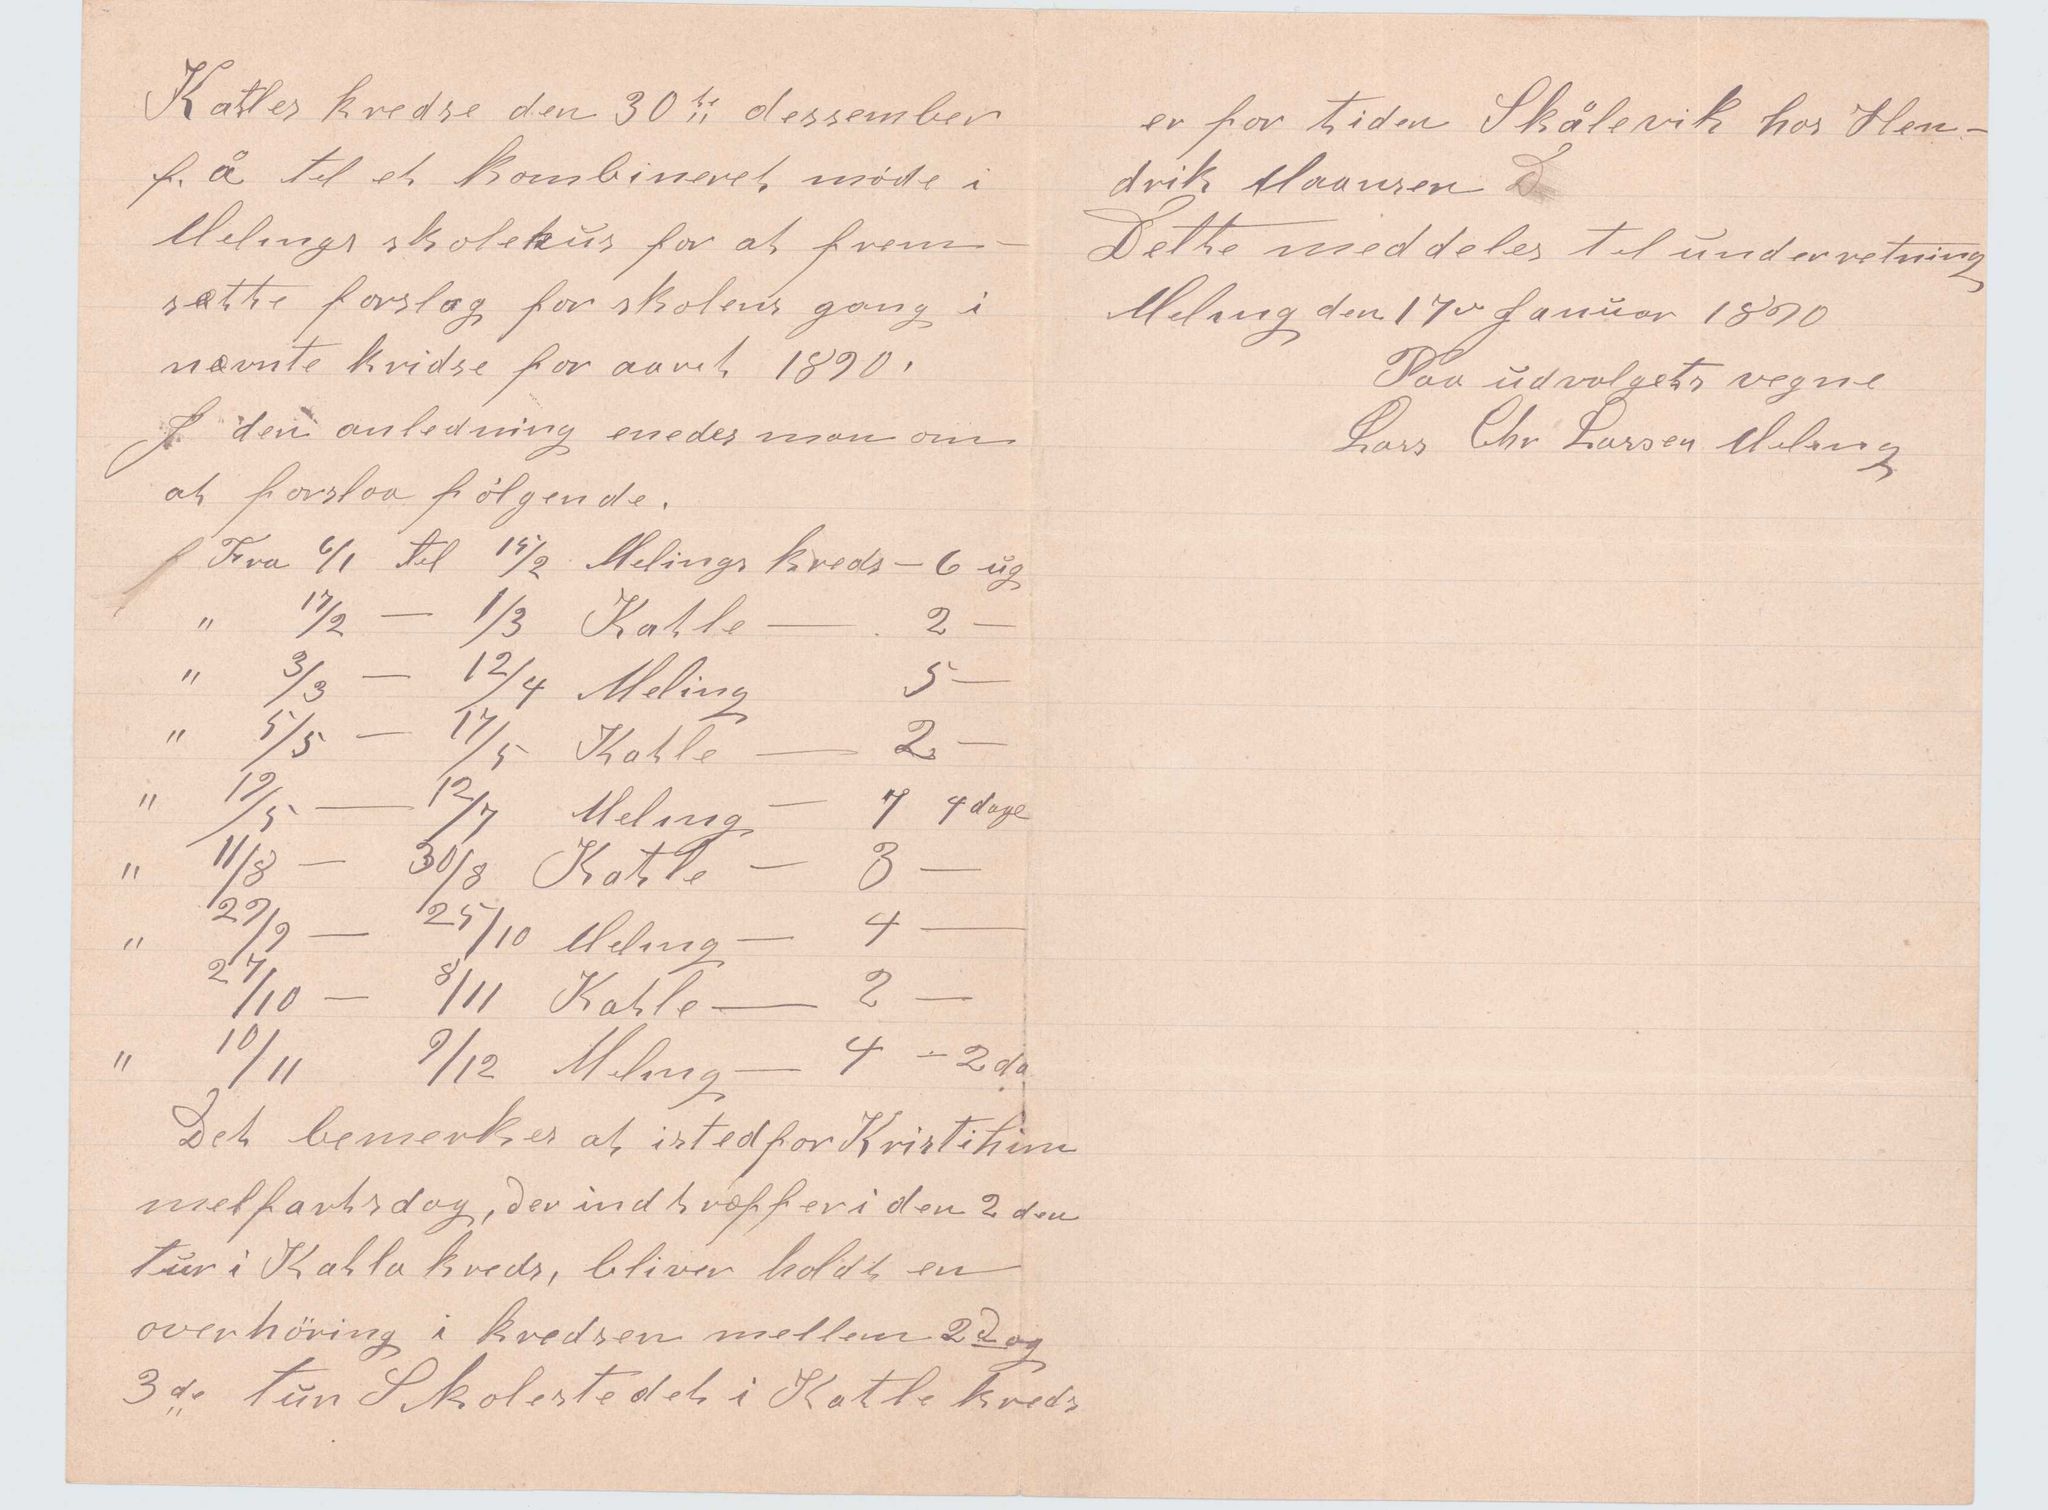 Katles kredse den 30te dessember
f. å til et kombineret møde i
Melings skolehus for at frem-
sætte forslag for skolens gang i
nævnte kridse for aaret 1890.
I den anledning enedes man om
at forslaa følgende.
Fra 6/1 til 15/2 Melings kreds – 6 ug
" 17/2 — 1/3 Katle — 2 —
" 3/3 — 12/4 Meling 5 —
" 5/5 — 17/5 Katle — 2 —
" 19/5 — 12/7 Meling — 7 4 dage
" 11/8 — 30/8 Katle — 3 —
" 29/9 — 25/10 Meling — 4 —
27/10 — 8/11 Katle — 2 —
" 10/11 9/12 Meling — 4 – 2 da
Det bemerkes at istedfor Kristihim
melfartsdag, der indtræffer i den 2den
tur i Katla kreds, bliver holdt en
overhöring i kredsen mellem 2d og
3de tur Skolestedet i Katle kreds
er for tiden Skålevik hos Hen-
drik Maansen
Dette meddeles til underretning
Meling den 17 Januar 1890
Paa udvalgets vegne
Lars Chr Larsen Meling